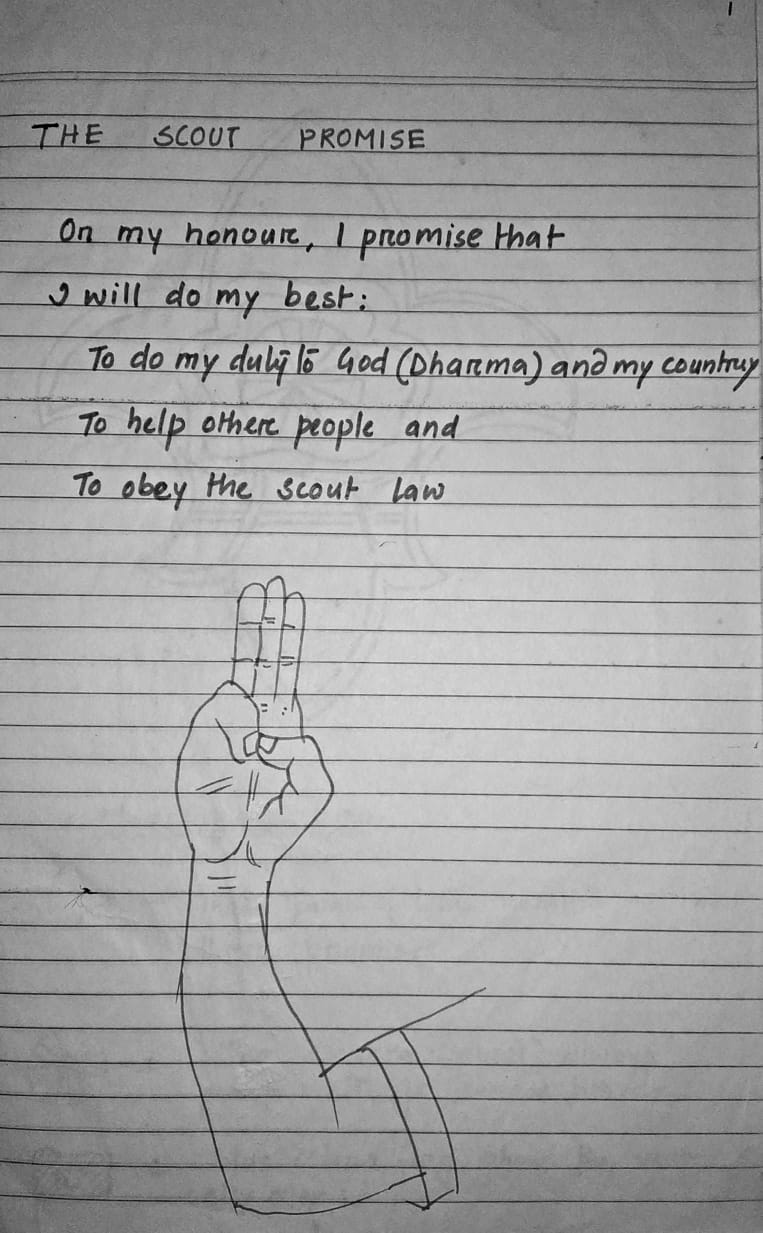 1
THE SCOUT PROMISE
On my honour, I promise that
I will do my best:
To do my duty to God (Dharma) and my country
To help other people and
To obey the scout law